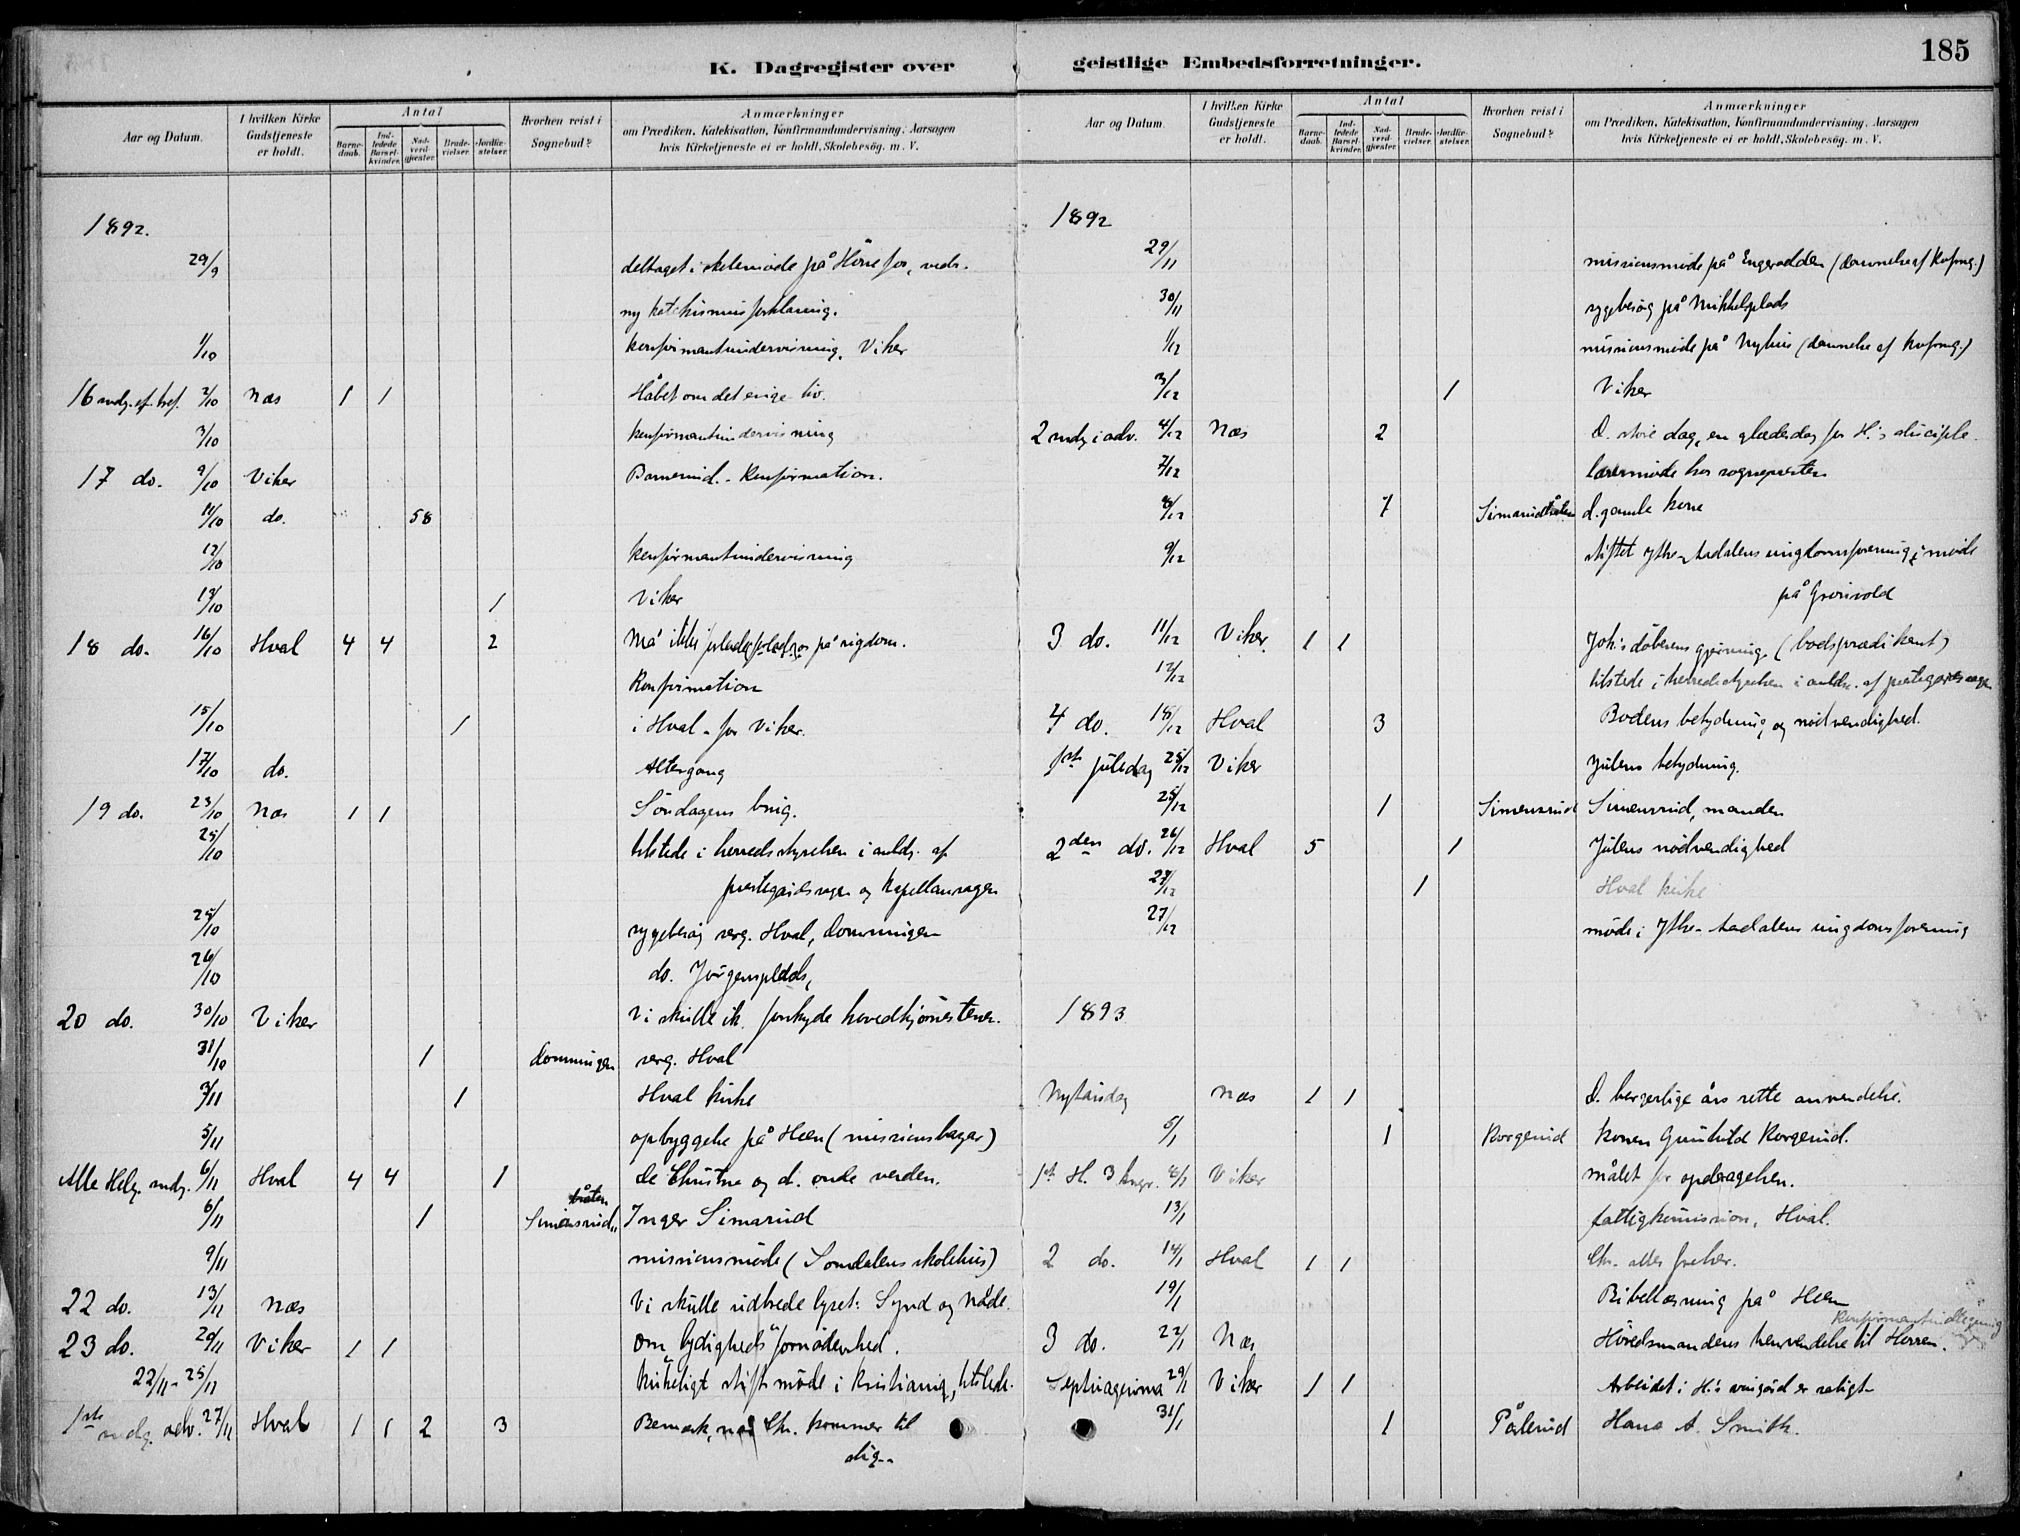 185
K. Dagregister over geistlige Embedsforretninger.
Aar og Datum.
I hvilken Kirke Gudstjeneste er holdt.
Antal
Barne-daab.
Ind-ledede Barsel-kvinder.
Nad-verd-gjæster.
Brude-vielser.
Jordfæ-stelser.
Hvorhen reist i Sognebud?
Anmærkninger
om Prædiken, Katekisation, Konfirmandundervisning, Aarsagen
hvis Kirketjeneste ei er holdt, Skolebesög. m. V.
1892.
29/9 deltaget i skolemöde på Hönefos, vedr.
ny katekismusforklaring.
1/10 konfirmantundervisning, Viker
16 søndg. ef. tref. 2/10 Næs 1 1 Håbet om det evige liv.
3/10 konfirmantundervisning
17 do. 9/10 Viker Konfirmation.
11/10 do. 58
12/10 konfirmantundervisning
13/10 1 Viker
18 do. 16/10 Hval 4 4 2 Må ikke på rigdom.
Konfirmation
15/10 1 i Hval - for Viker.
17/10 do. Altergang
19 do. 23/10 Næs 1 1 Söndagens brug.
25/10 tilstede i herredsstyrelsen i anldn. af
prestegårdssagen og kapellansagen
25/10 sygebesög Hval, Domningen
26/10 do. Jörgensplads,
20 do. 30/10 Viker Vi skulle ik. forskyde hovedhjörnestenen.
31/10 1 Domningen Hval
3/11 1 Hval kirke
5/11 opbyggelse på Heen (missionsbazar)
Alle Helg. søndg. 6/11 Hval 4 4 1 De Christne og d. onde verden.
6/11 1 Simensrudbråten Inger Simarud
9/11 missionsmöde (Somdalens skolehus)
22 do. 13/11 Næs Vi skulle udbrede lyset: Synd og Nåde.
23 do. 20/11 Viker 1 1 om lydigheds fornödenhed.
22/11 - 25/11 kirkeligt stiftsmöde i Kristiania, tilstede.
1ste søndg. adv. 27/11 Hval 1 1 2 3 Bemærk, når Chr. kommer til
dig.
Aar og Datum.
I hvilken Kirke Gudstjeneste er holdt.
Antal
Barne-daab.
Ind-ledede Barsel-kvinder.
Nad-verd-gjæster.
Brude-vielser.
Jordfæ-stelser.
Hvorhen reist i Sognebud?
Anmærkninger
om Prædiken, Katekisation, Konfirmandundervisning, Aarsagen
hvis Kirketjeneste ei er holdt, Skolebesög. m. V.
1892
29/11 missionsmöde på Engerodden (dannelse af kvfrng.)
30/11 sygebesög på Mikkelsplads
1/12 missionsmöde på Nyhus (dannelse af kvfrng.)
3/12 1 Viker
2 søndg i adv. 4/12 Næs 2 D. store dag, en glædesdag for H.'s disciple.
7/12 lærermöde hos sognepresten
8/12 7 Simarudbråten d. gamle kone
9/12 stiftet Ytre-Aadalens ungdomsforening i möde
på Grönvold
3 do. 11/12 Viker 1 1 Joh.'s döberens gjerning. (bodsprædikant)
12/12 tilstede i herredsstyrelsen i anldn. af prestegårdssagen
4 do. 18/12 Hval 3 Bodens betydning og nödvendighed.
1ste juledag 25/12 Viker Julens betydning.
25/12 1 Simensrud Simensrud, manden
2den do. 26/12 Hval 5 1 Julens nödvendighed
27/12 1 Hval kirke
27/12 möde i Ytre-Aadalens ungdomsforening
1893
Nytårsdag Næs 1 1 D. borgerlige års rette anvendelse.
5/1 1 Korgerud Konen Gunhild Korgerud.
1st H. 3 kngr. 8/1 Viker målet for opdragelsen.
13/1 fattigkomission, Hval.
2 do. 14/1 Hval 1 1 Chr. alles frelser.
19/1 Bibellæsning på Heen
Konfirmantindtegning
3 do. 22/1 Næs Hövedsmandens henvendelse til Herren.
Septuagesima 29/1 Viker 1 1 Arbeidet i H.'s vingård er saligt
31/1 1 Pålerud Hans A. Smith.